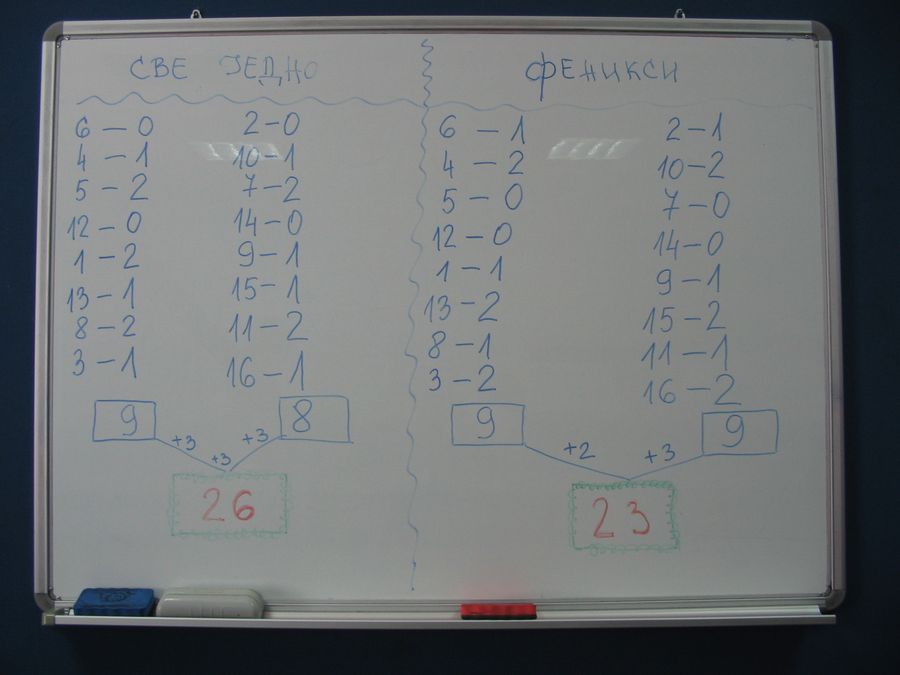 СВЕ ЈЕДНО
6 – 0
4 – 1
5 – 2
12 – 0
1 – 2
13 – 1
8 – 2
3 – 1
9
2 – 0
10 – 1
7 – 2
14 – 0
9 – 1
15 – 1
11 – 2
16 – 1
8
+3
+3
+3
26
ФЕНИКСИ
6 – 1
4 – 2
5 – 0
12 – 0
1 – 1
13 – 2
8 – 1
3 – 2
9
2 – 1
10 – 2
7 – 0
14 – 0
9 – 1
15 – 2
11 – 1
16 – 2
9
+2
+3
23